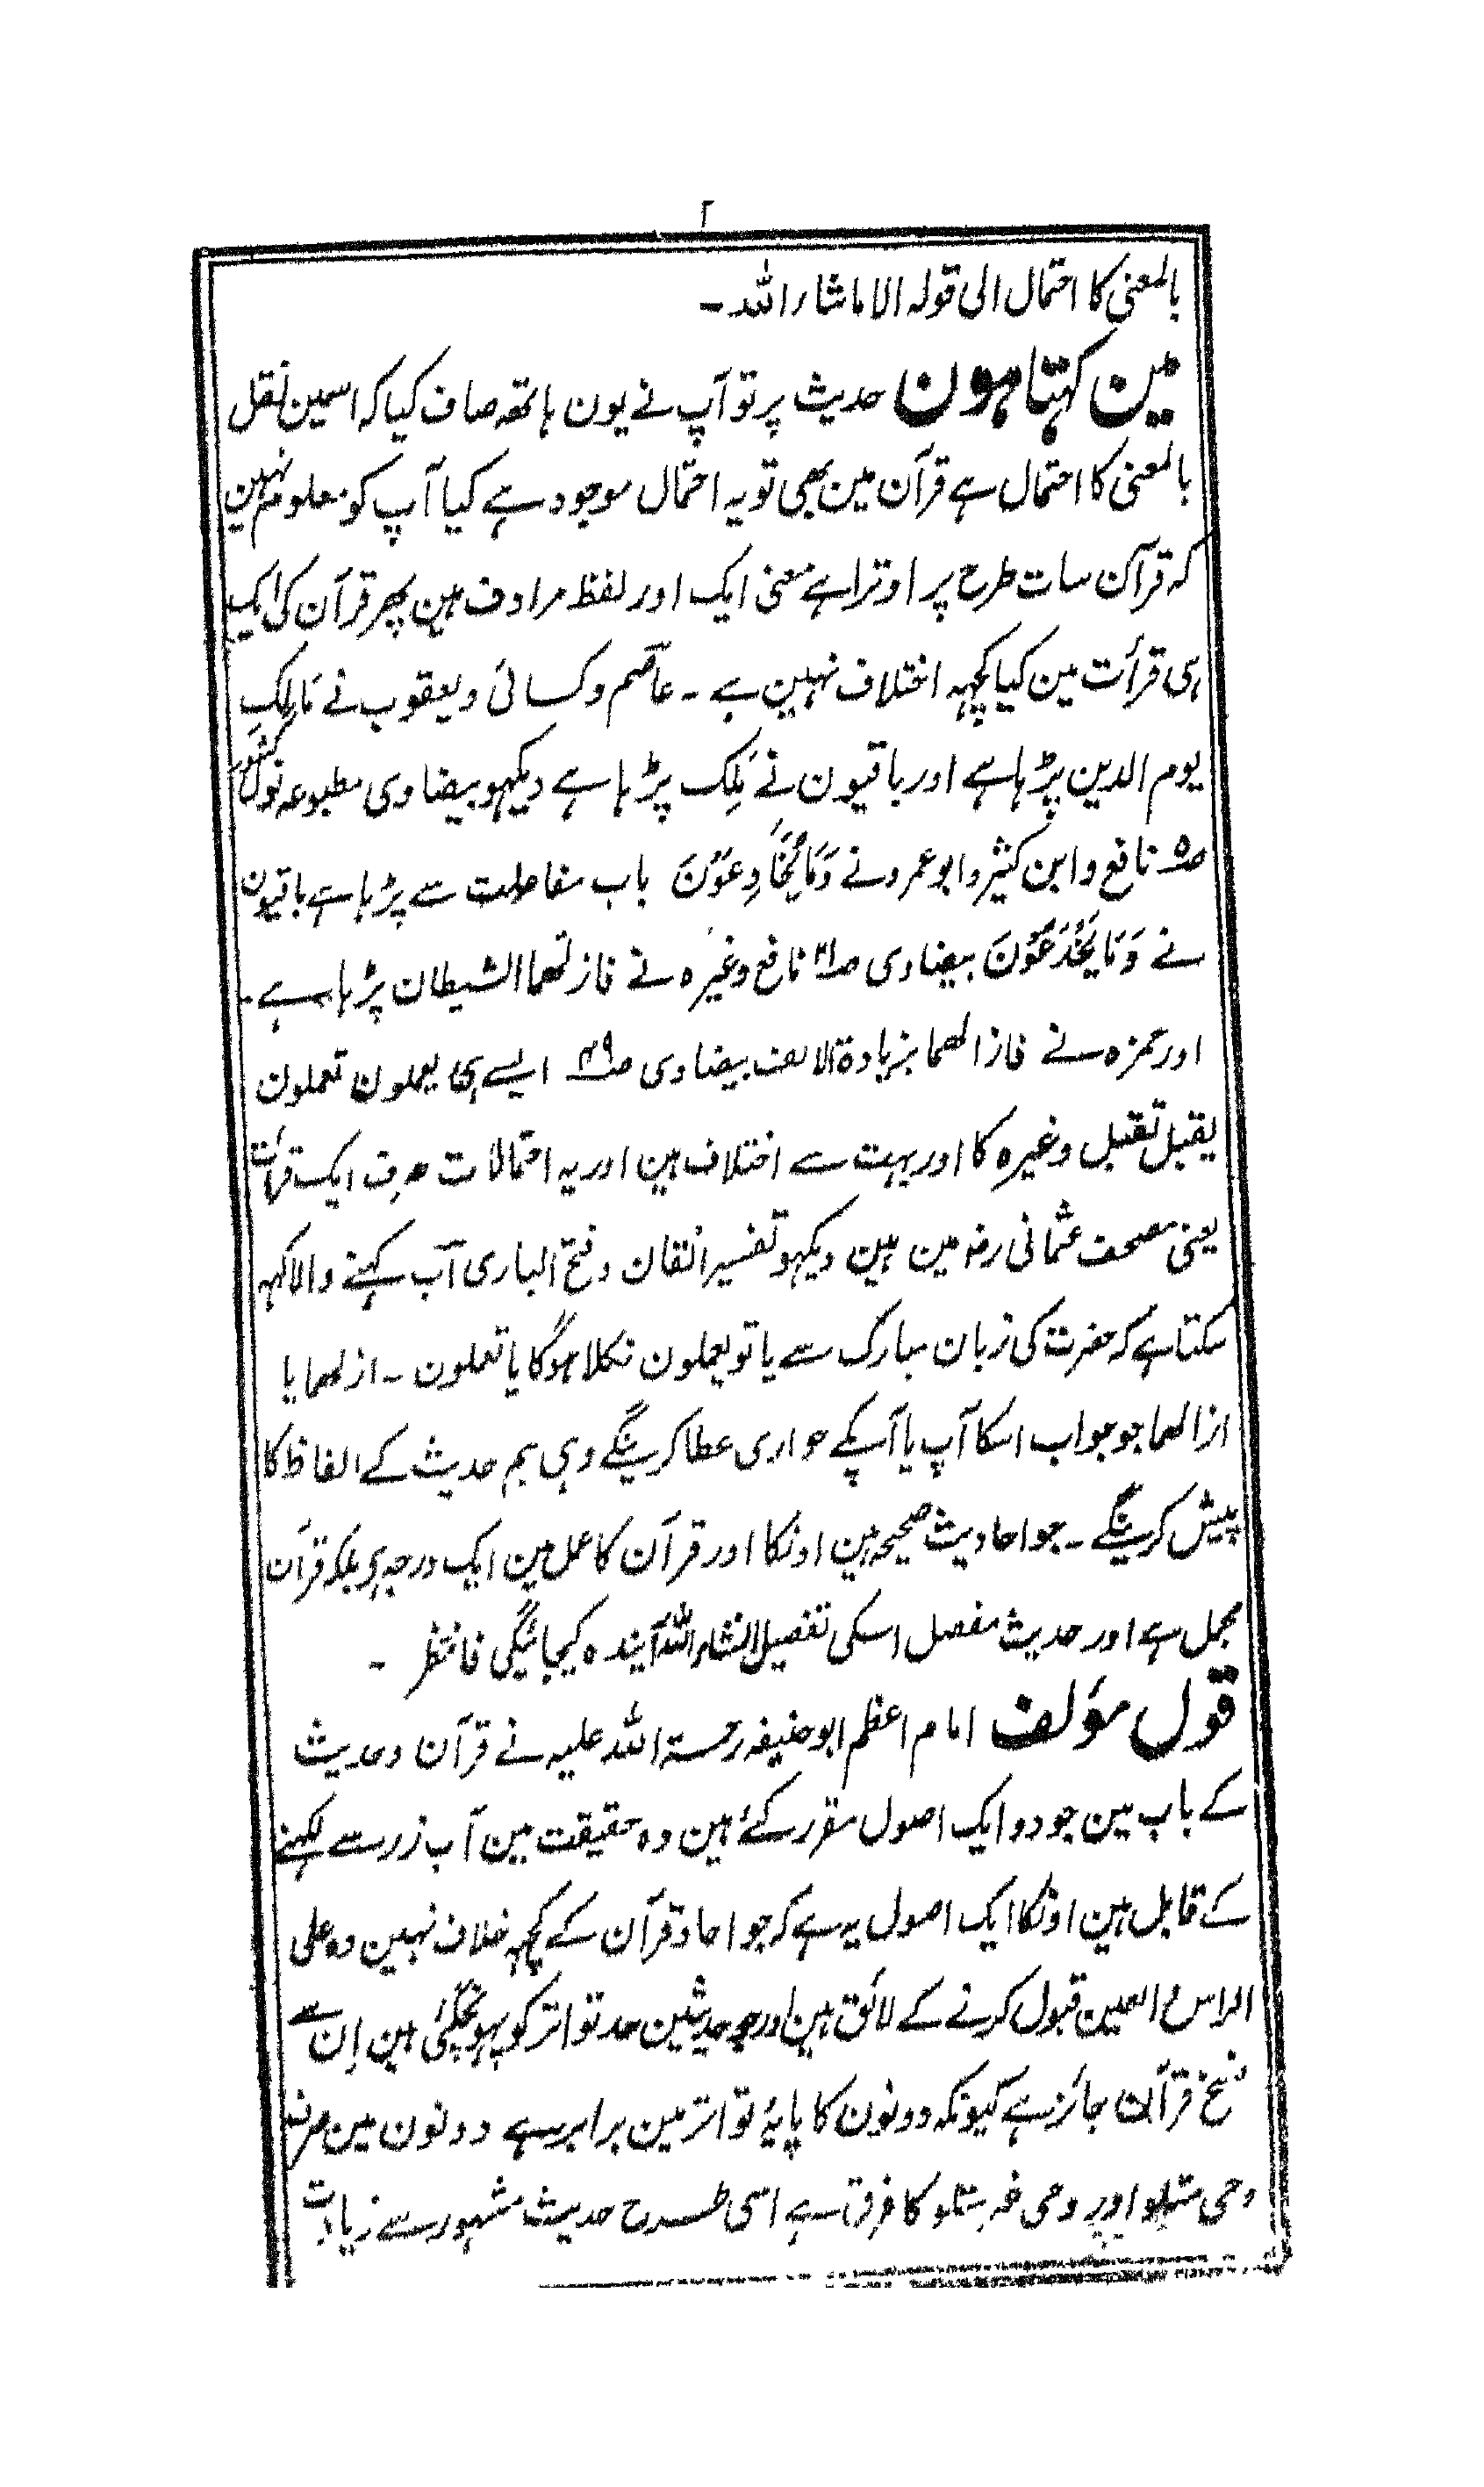 ۲
بالمعنی کا احتمال الی قولہ الا ماشاء اللہ ۔
مین کہتا ہون حدیث پر تو آپ نے یون ہاتھہ صاف کیا کہ اسمین نقل
بالمعنی کا احتمال ہے قرآن مین بھی تو یہ احتمال موجود ہے کیا آپ کو معلوم نہین
کہ قرآن سات طرح پر اوترا ہے معنی ایک اور لفظ مرادف ہین پھر قرآن کی ایک
ہی قرأت مین کیا کچہہ اختلاف نہین ہے ۔ عاصم و کسائی و یعقوب نے مَالِکِ
یوم الدین پڑہا ہے اور باقیون نے مَلِکِ پڑہا ہے دیکہو بیضاوی مطبوعہ نول کشور
صـ۵ نافع و ابن کثیر و ابو عمرو نے وَمَا یُخَادِعُوْنَ باب مفاعلت سے پڑہا ہے باقیون
نے وَمَا یَخْدَعُوْنَ بیضاوی صـ۲۱ نافع وغیرہ نے فازلھما الشیطان پڑہا ہے ۔
اور حمزہ نے فازالھما بزیادۃ الالف بیضاوی صـ۴۹ ایسے ہی یعملون تعملون
یقبل تقبل وغیرہ کا اور بہت سے اختلاف ہین اور یہ احتمالات صرف ایک قرأت
یعنی مصحف عثمانی رضہ مین ہین دیکہو تفسیر اتقان و فتح الباری آب کہنے والا کہہ
سکتا ہے کہ حضرت کی زبان مبارک سے یا تو یعملون نکلا ہوگا یا تعملون ۔ ازلھما یا
ازالھما جو جواب اسکا آپ یا آپکے حواری عطا کرینگے وہی ہم حدیث کے الفاظ کا
پیش کرینگے ۔ جو احادیث صحیحہ ہین اونکا اور قرآن کا عمل مین ایک درجہ ہی بلکہ قرآن
مجمل ہے اور حدیث مفصل اسکی تفصیل انشاء اللہ آیندہ کیجائیگی فانتظر ۔
قول مؤلف امام اعظم ابو حنیفہ رحمۃ اللہ علیہ نے قرآن و حدیث
کے باب مین جو دو ایک اصول مقرر کئے ہین وہ حقیقت مین آب زر سے لکہنے
کے قابل ہین اونکا ایک اصول یہ ہے کہ جو احاد قرآن کے کچہہ خلاف نہین وہ علی
الراس و العین قبول کرنے کے لائق ہین اور جو حدیثین حد تواتر کو پہونچگئی ہین اِن سے
نسخ قرآن جائز ہے کیونکہ دونون کا پایۂ تواتر مین برابر ہے دونون مین صرف
وحی متلو اور وحی غیر متلو کا فرق ہے اسی طرح حدیث مشہور سے زیادت